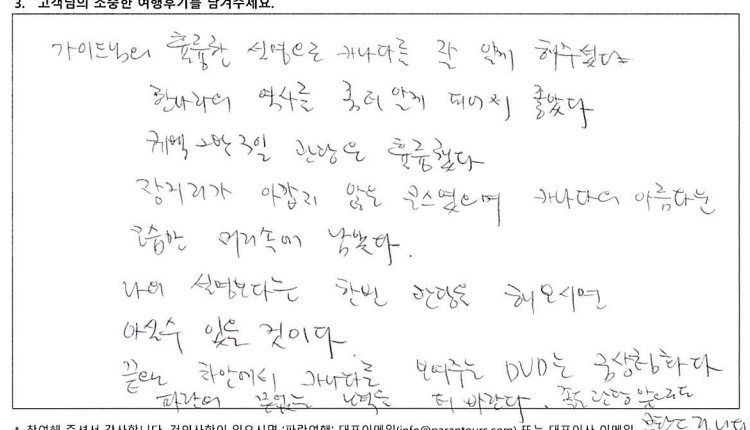 3. 고객님의 소중한 여행후기를 남겨주세요.
가이드님의 훌륭한 설명으로 캐나다를 잘 알게 해주셨다
한나라의 역사를 좀더 알게 되어서 좋았다
퀘벡 2박3일 관광은 훌륭했다
장거리가 아깝지 않을 코스였으며 캐나다의 아름다운
모습만 머리속에 남았다.
나의 설명보다는 한번 관광을 해보시면
아실수 있을 것이다.
끝으로 차안에서 캐나다를 보여주는 DVD는 금상첨화다
파란의 끝없는 노력을 더 바란다. 좋은 관광
* 참여해 주셔서 감사합니다. 건의사항이 있으시면 '파란여행' 대표이메일(info@parantours.com) 또는 대표이사 이메일